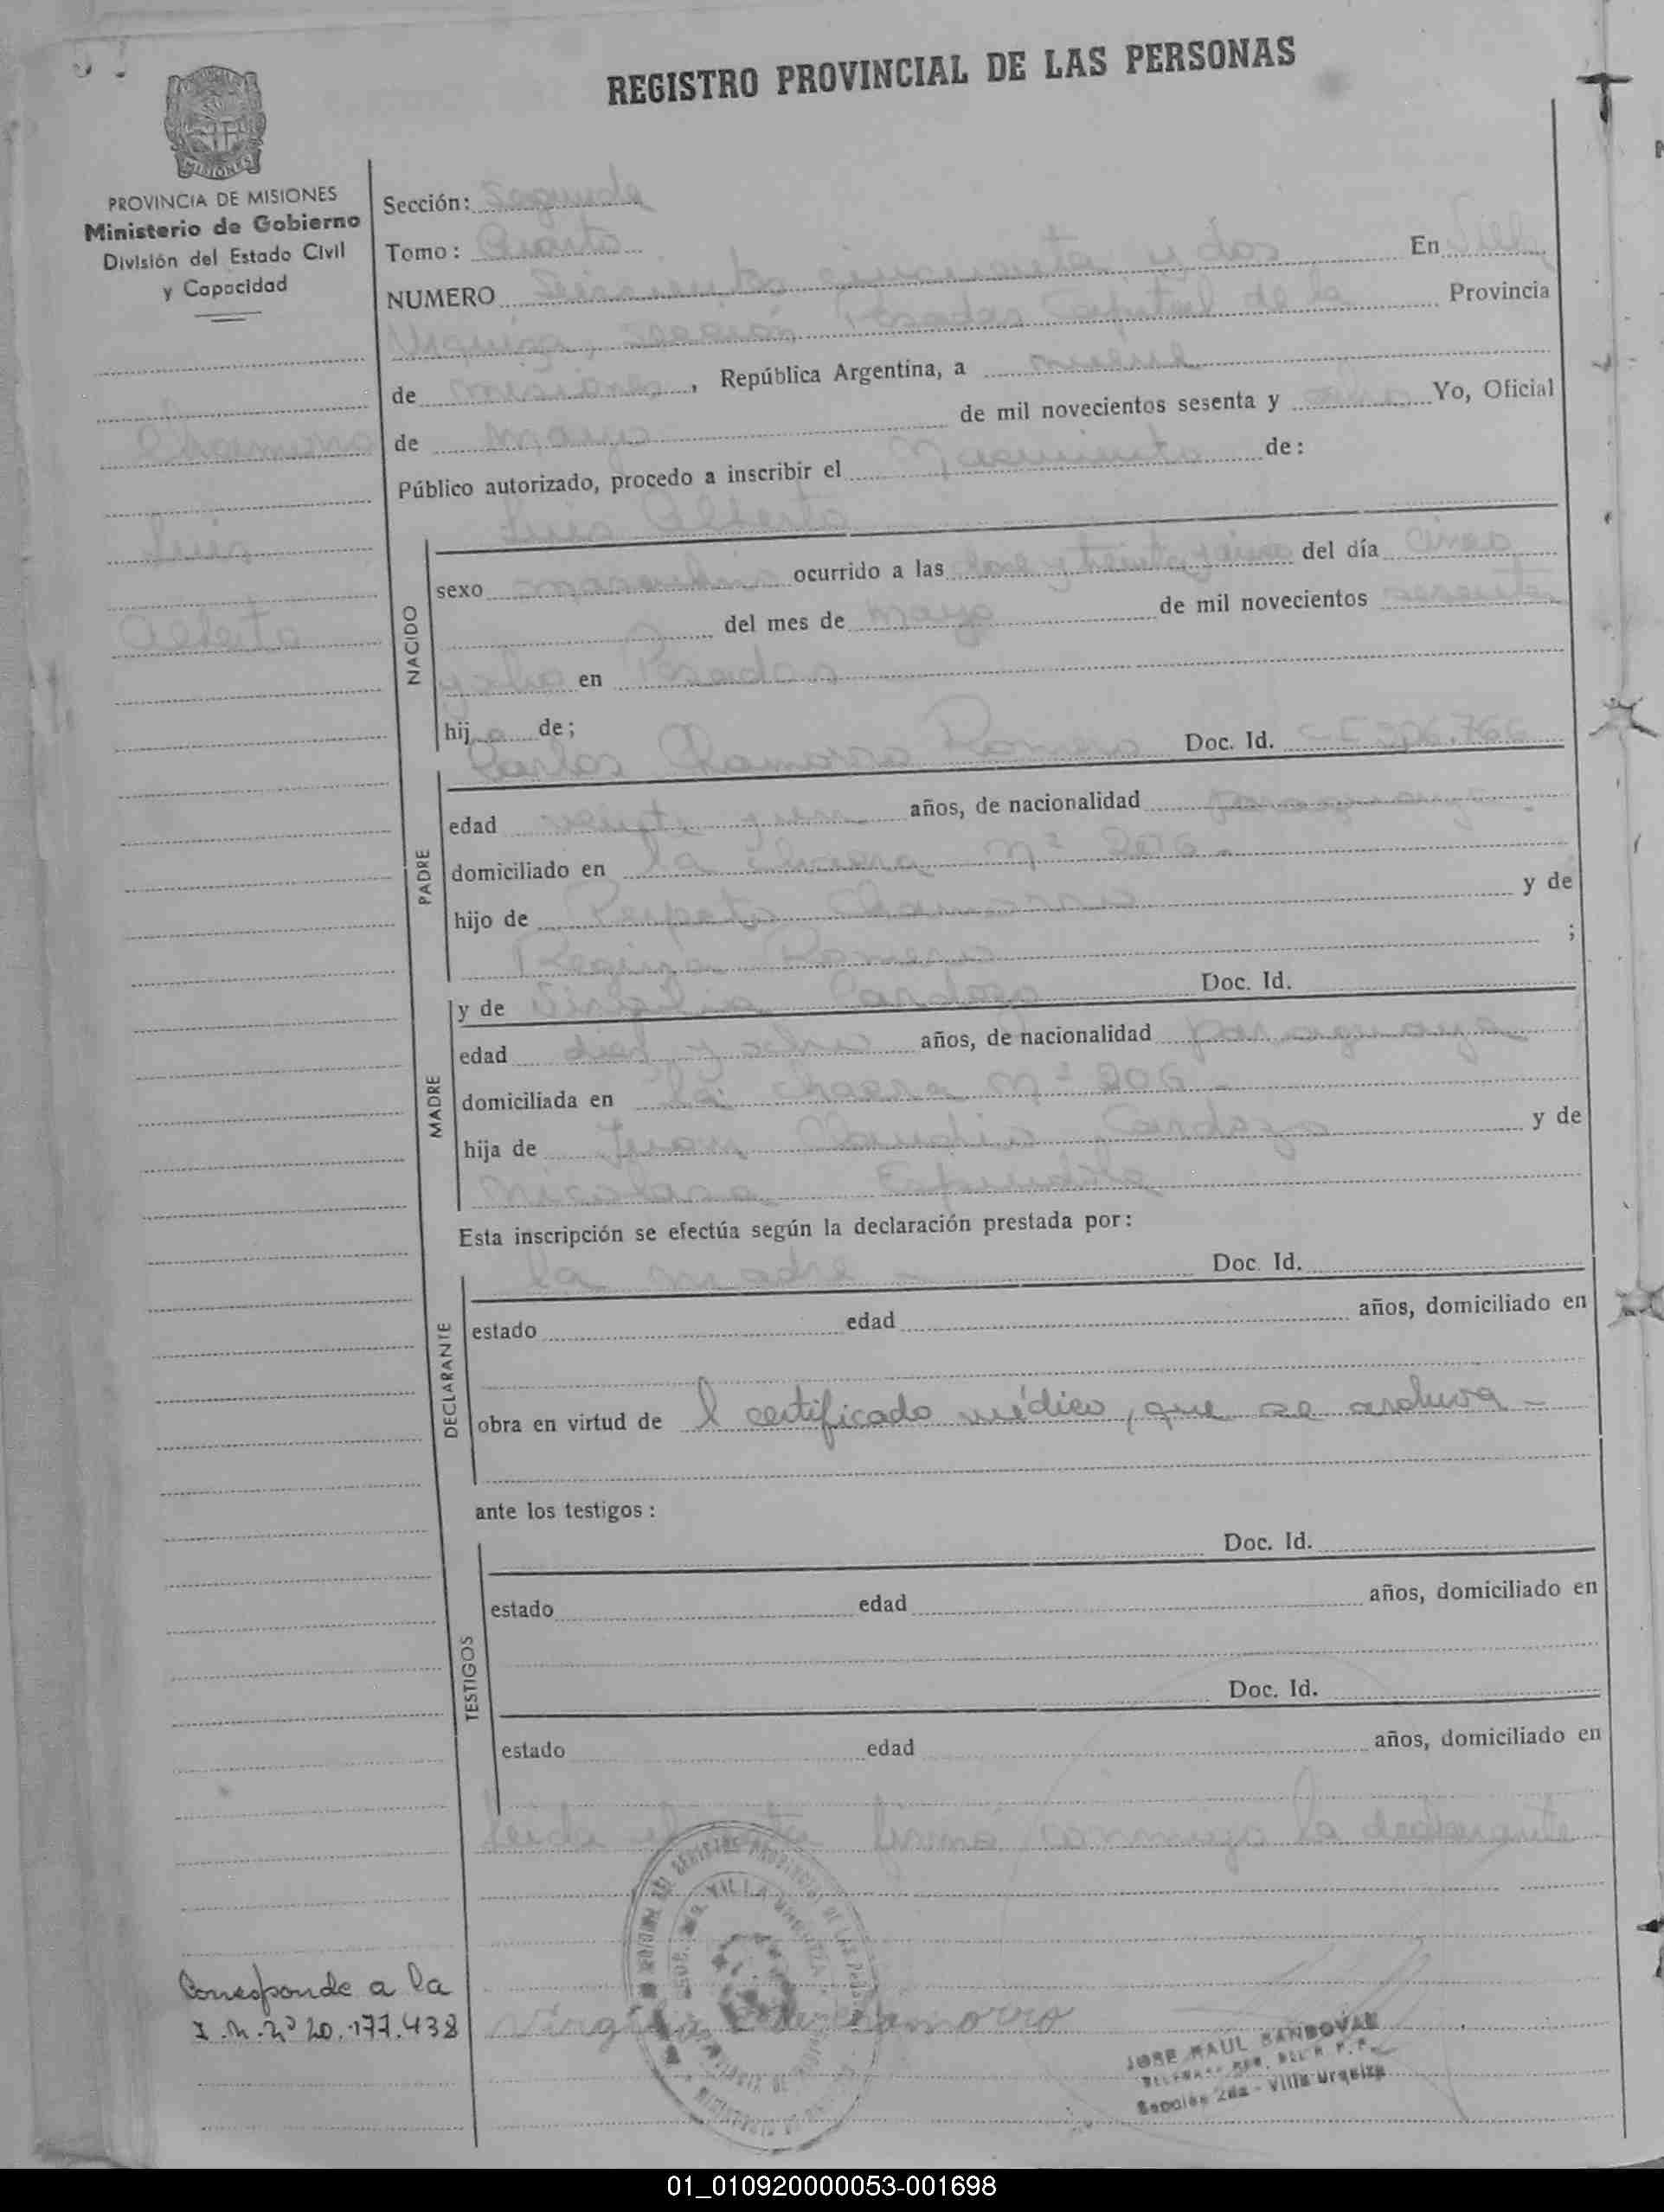 REGISTRO PROVINCIAL DE LAS PERSONAS
MISIONES
PROVINCIA DE MISIONES
Ministerio de Gobierno
División del Estado Civil
y Capacidad
Chamorro
Luis
Alberto
Sección: Segunda
Tomo: Cuarto
NUMERO cincuenta y dos En Villa
Urquiza, Sección Posadas Capital de la Provincia
de Misiones, República Argentina, a nueve
de mayo de mil novecientos sesenta y ocho Yo, Oficial
Público autorizado, procedo a inscribir el Nacimiento de:
Luis Alberto
NACIDO
sexo masculino ocurrido a las doce y treinta y cinco del día cinco
del mes de Mayo de mil novecientos sesenta
y ocho en Posadas
hijo de;
Carlos Chamorro Romero Doc. Id.
PADRE
edad veinte y años, de nacionalidad paraguaya.
domiciliado en la Chacra Nº 206.-
hijo de Chamorro y de
Regina Romero ;
y de Virgilia Cardozo Doc. Id.
MADRE
edad diez y ocho años, de nacionalidad paraguaya
domiciliada en la chacra Nº 206.-
hija de Juan Cardozo y de
Nicolasa Espíndola
Esta inscripción se efectúa según la declaración prestada por:
la madre - Doc. Id.
DECLARANTE
estado edad años, domiciliado en
obra en virtud de l certificado médico, que se archiva -
ante los testigos:
Doc. Id.
TESTIGOS
estado edad años, domiciliado en
Doc. Id.
estado edad años, domiciliado en
Leida el acta firmó conmigo la declarante
Corresponde a la
I.M.Nº 20.177.438
Virgilia Chamorro
JOSE RAUL SANDOVAL
Sección 2da - Villa Urquiza
01_010920000053-001698